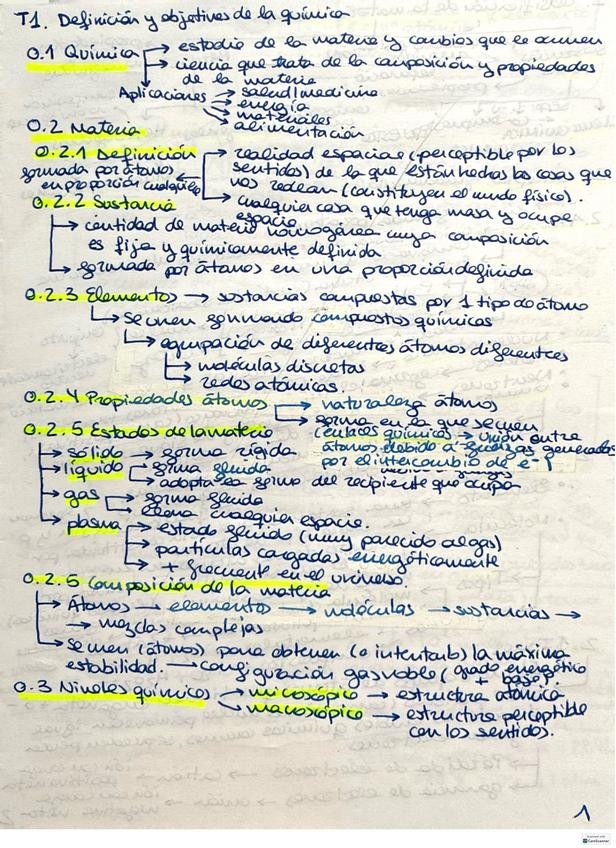 T1. Definición y objetivos de la química
0.1 Química → estudio de la materia y cambios que le ocurren
→ ciencia que trata de la composición y propiedades
de la materia
Aplicaciones → salud/medicina
→ energía
→ materiales
→ alimentación
0.2 Materia
0.2.1 Definición → realidad espacial (perceptible por los
formada por átomos sentidos) de la que están hechas las cosas que
en proporción cualquiera nos rodean (constituyen el mundo físico).
→ cualquier cosa que tenga masa y ocupe
espacio
0.2.2 Sustancia
→ cantidad de materia homogénea cuya composición
es fija y químicamente definida
→ formada por átomos en una proporción definida
0.2.3 Elementos → sustancias compuestas por 1 tipo de átomo
→ se unen formando compuestos químicos
→ agrupación de diferentes átomos diferentes
→ moléculas discretas
→ redes atómicas
0.2.4 Propiedades átomos → naturaleza átomos
→ forma en la que se unen
(enlaces químicos → unión entre
átomos debido a fuerzas generadas
por el intercambio de e-)
0.2.5 Estados de la materia
→ sólido → forma rígida
→ líquido → forma fluida
→ adopta la forma del recipiente que ocupa
→ gas → forma fluida
→ llena cualquier espacio.
→ plasma → estado fluido (muy parecido al gas)
→ partículas cargadas energéticamente
→ + frecuente en el universo.
0.2.5 Composición de la materia
→ Átomos → elementos → moléculas → sustancias →
→ mezclas complejas
→ se unen (átomos) para obtener (o intentarlo) la máxima
estabilidad. → configuración gas noble (estado energético
+ bajo).
0.3 Niveles químicos → micoscópico → estructura atómica
→ macoscópico → estructura perceptible
con los sentidos.
1
CamScanner